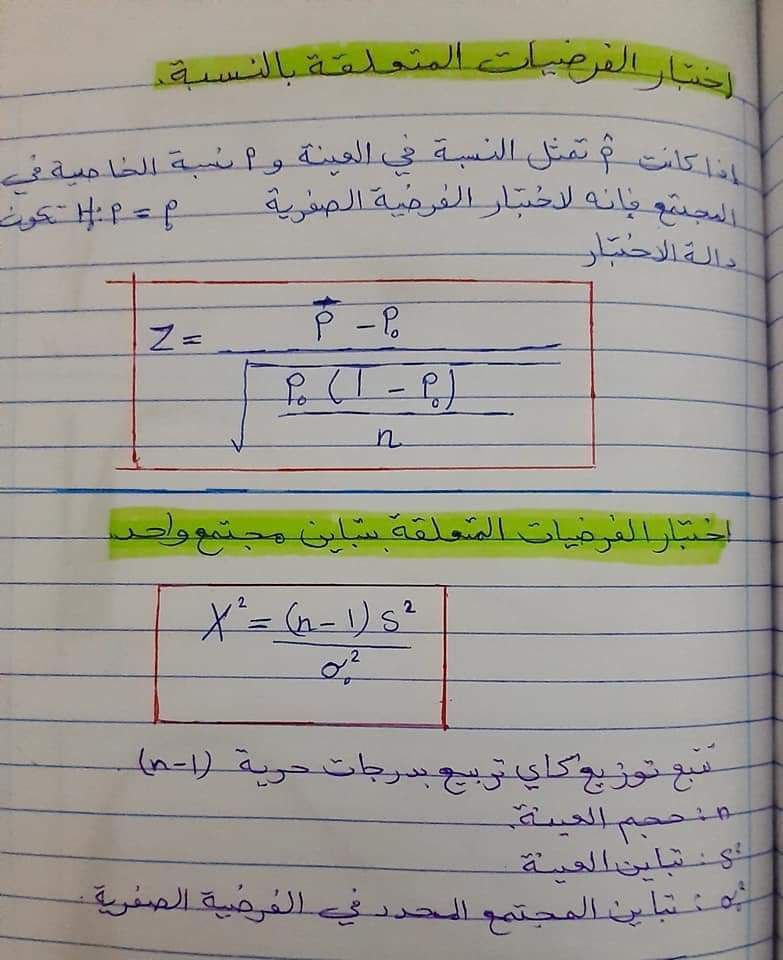 اختبار الفرضيات المتعلقة بالنسبة.
إذا كانت p̂ تمثل النسبة في العينة و p نسبة الخاصية في
المجتمع فإنه لاختبار الفرضية الصفرية H₀: p = p₀ تكون
دالة الاختبار
Z = (p̂ - p₀) / √(p₀ (1 - p₀) / n)
اختبار الفرضيات المتعلقة بتباين مجتمع واحد.
X² = (n-1) s² / σ₀²
تتبع توزيع كاي تربيع بدرجات حرية (n-1)
n: حجم العينة.
s²: تباين العينة
σ₀²: تباين المجتمع المحدد في الفرضية الصفرية.